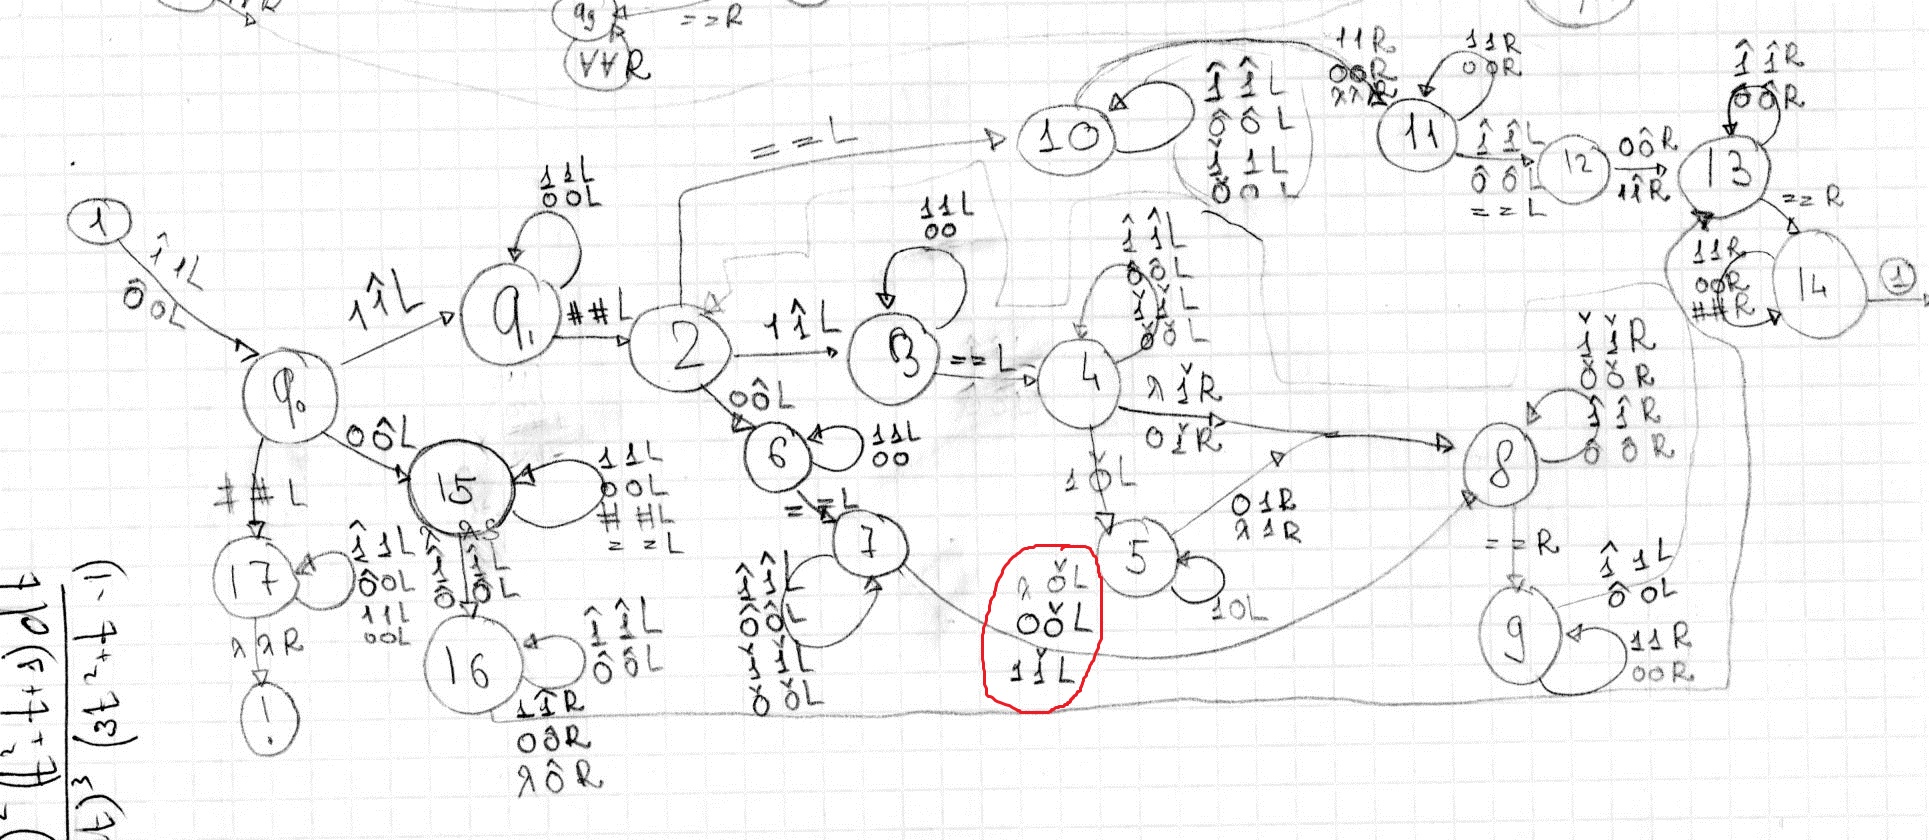 q₉
= = R
∀∀R
1
1̂ 1 L
0̂ 0 L
q₀
1 1̂ L
1 1 L
0 0 L
q₁
# # L
2
= = L
10
1̂ 1̂ L
0̂ 0̂ L
1̌ 1 L
0̌ 0 L
1 1 R
0 0 R
λ λ R
11
1 1 R
0 0 R
1̂ 1̂ L
0̂ 0̂ L
= = L
12
0 0̂ R
1 1̂ R
13
1̂ 1̂ R
0̂ 0̂ R
= = R
14
1 1 R
0 0 R
# # R
1
1 1̂ L
3
1 1 L
0 0
= = L
4
1̂ 1̂ L
0̂ 0̂ L
1̌ 1̌ L
0̌ 0̌ L
λ 1̌ R
0 1̌ R
1 0̌ L
5
0 1 R
λ 1 R
1 0 L
0 0̂ L
6
1 1 L
0 0
= = L
7
1̂ 1̂ L
0̂ 0̂ L
1̌ 1̌ L
0̌ 0̌ L
λ 0̌ L
0 0̌ L
1 1̌ L
8
1̌ 1̌ R
0̌ 0̌ R
1̂ 1̂ R
0̂ 0̂ R
= = R
9
1̂ 1 L
0̂ 0 L
1 1 R
0 0 R
0 0̂ L
15
1 1 L
0 0 L
# # L
= = L
λ λ S
1̂ 1̂ L
0̂ 0̂ L
16
1̂ 1̂ L
0̂ 0̂ L
1 1̂ R
0 0̂ R
λ 0̂ R
# # L
17
1̂ 1 L
0̂ 0 L
1 1 L
0 0 L
λ λ R
!
(t²-t+1)dt
t)³ (3t²+t-1)